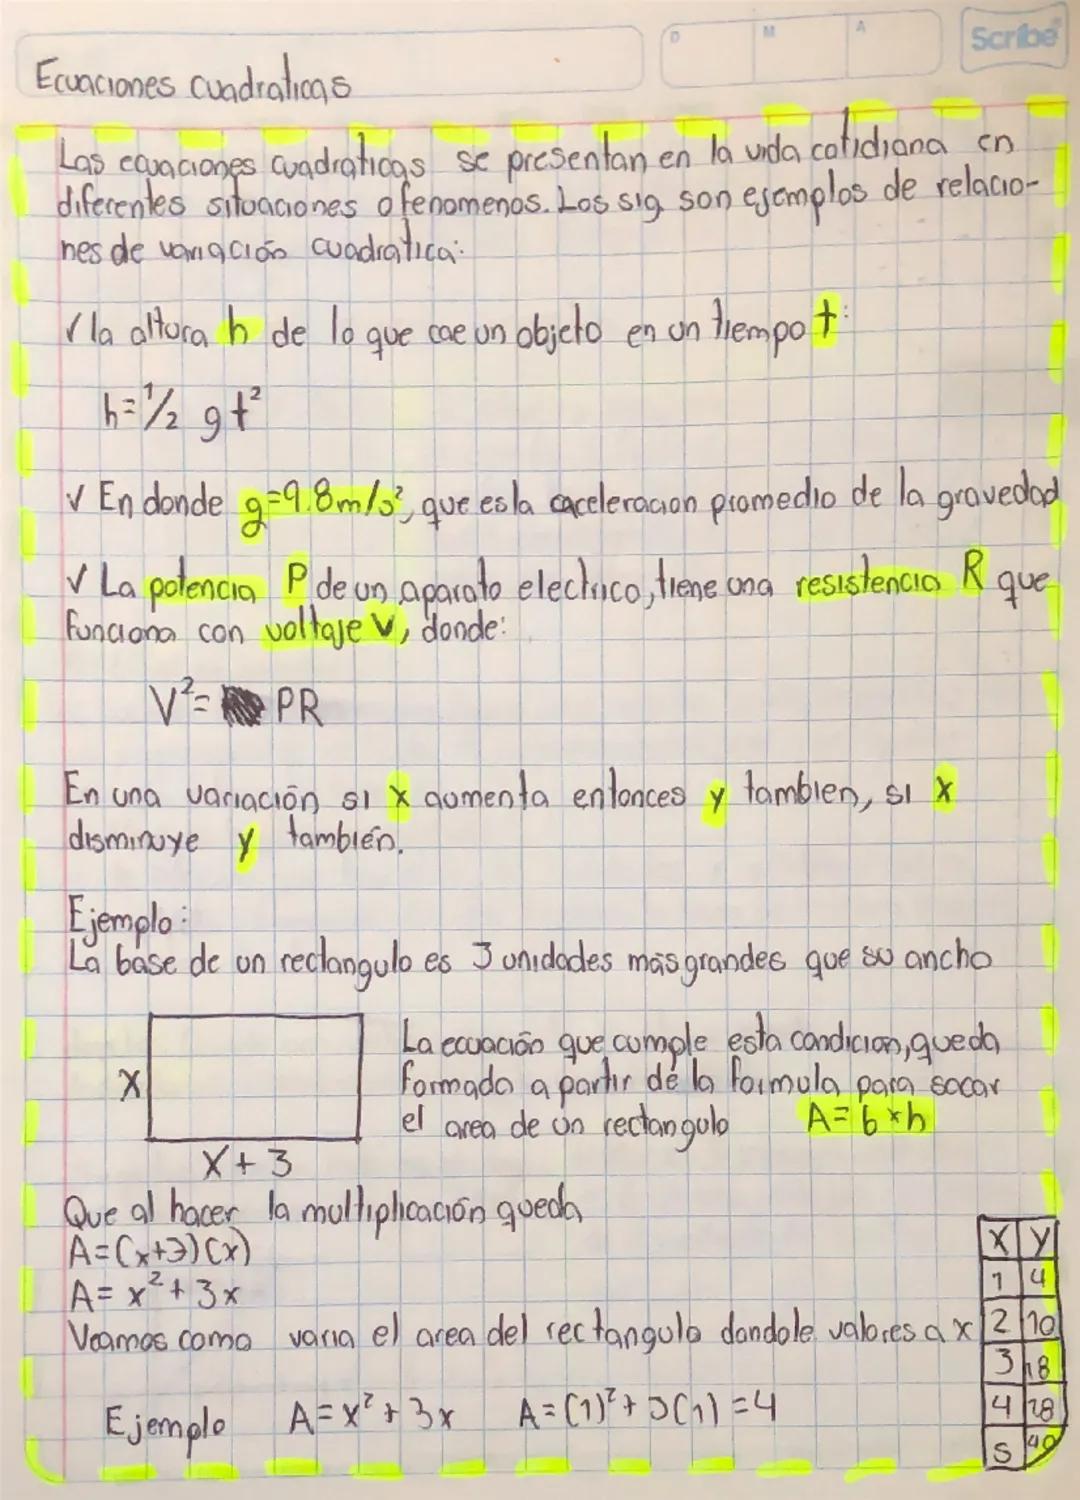 Scribe
D M A
Ecuaciones cuadraticas
Las ecuaciones cuadraticas se presentan en la vida cotidiana en
diferentes situaciones o fenomenos. Los sig son ejemplos de relacio-
nes de variación cuadratica:
√ la altura h de lo que cae un objeto en un tiempo t:
h=1/2 gt²
√ En donde g=9.8m/s², que es la caceleracion promedio de la gravedad
√ La potencia P de un aparato electrico, tiene una resistencia R que
funciona con voltaje V, donde:
V²= PR
En una variación si x aumenta entonces y tambien, si x
disminuye y también.
Ejemplo:
La base de un rectangulo es 3 unidades más grandes que su ancho
La ecuación que cumple esta condicion, queda
x
formada a partir de la formula para sacar
el area de un rectangulo A=b×h
x+3
Que al hacer la multiplicación queda
A=(x+3)(x)
A= x²+3x
Veamos como varia el area del rectangulo dandole valores a x
Ejemplo A=x²+3x A=(1)²+3(1)=4
X Y
1 4
2 10
3 18
4 28
5 40